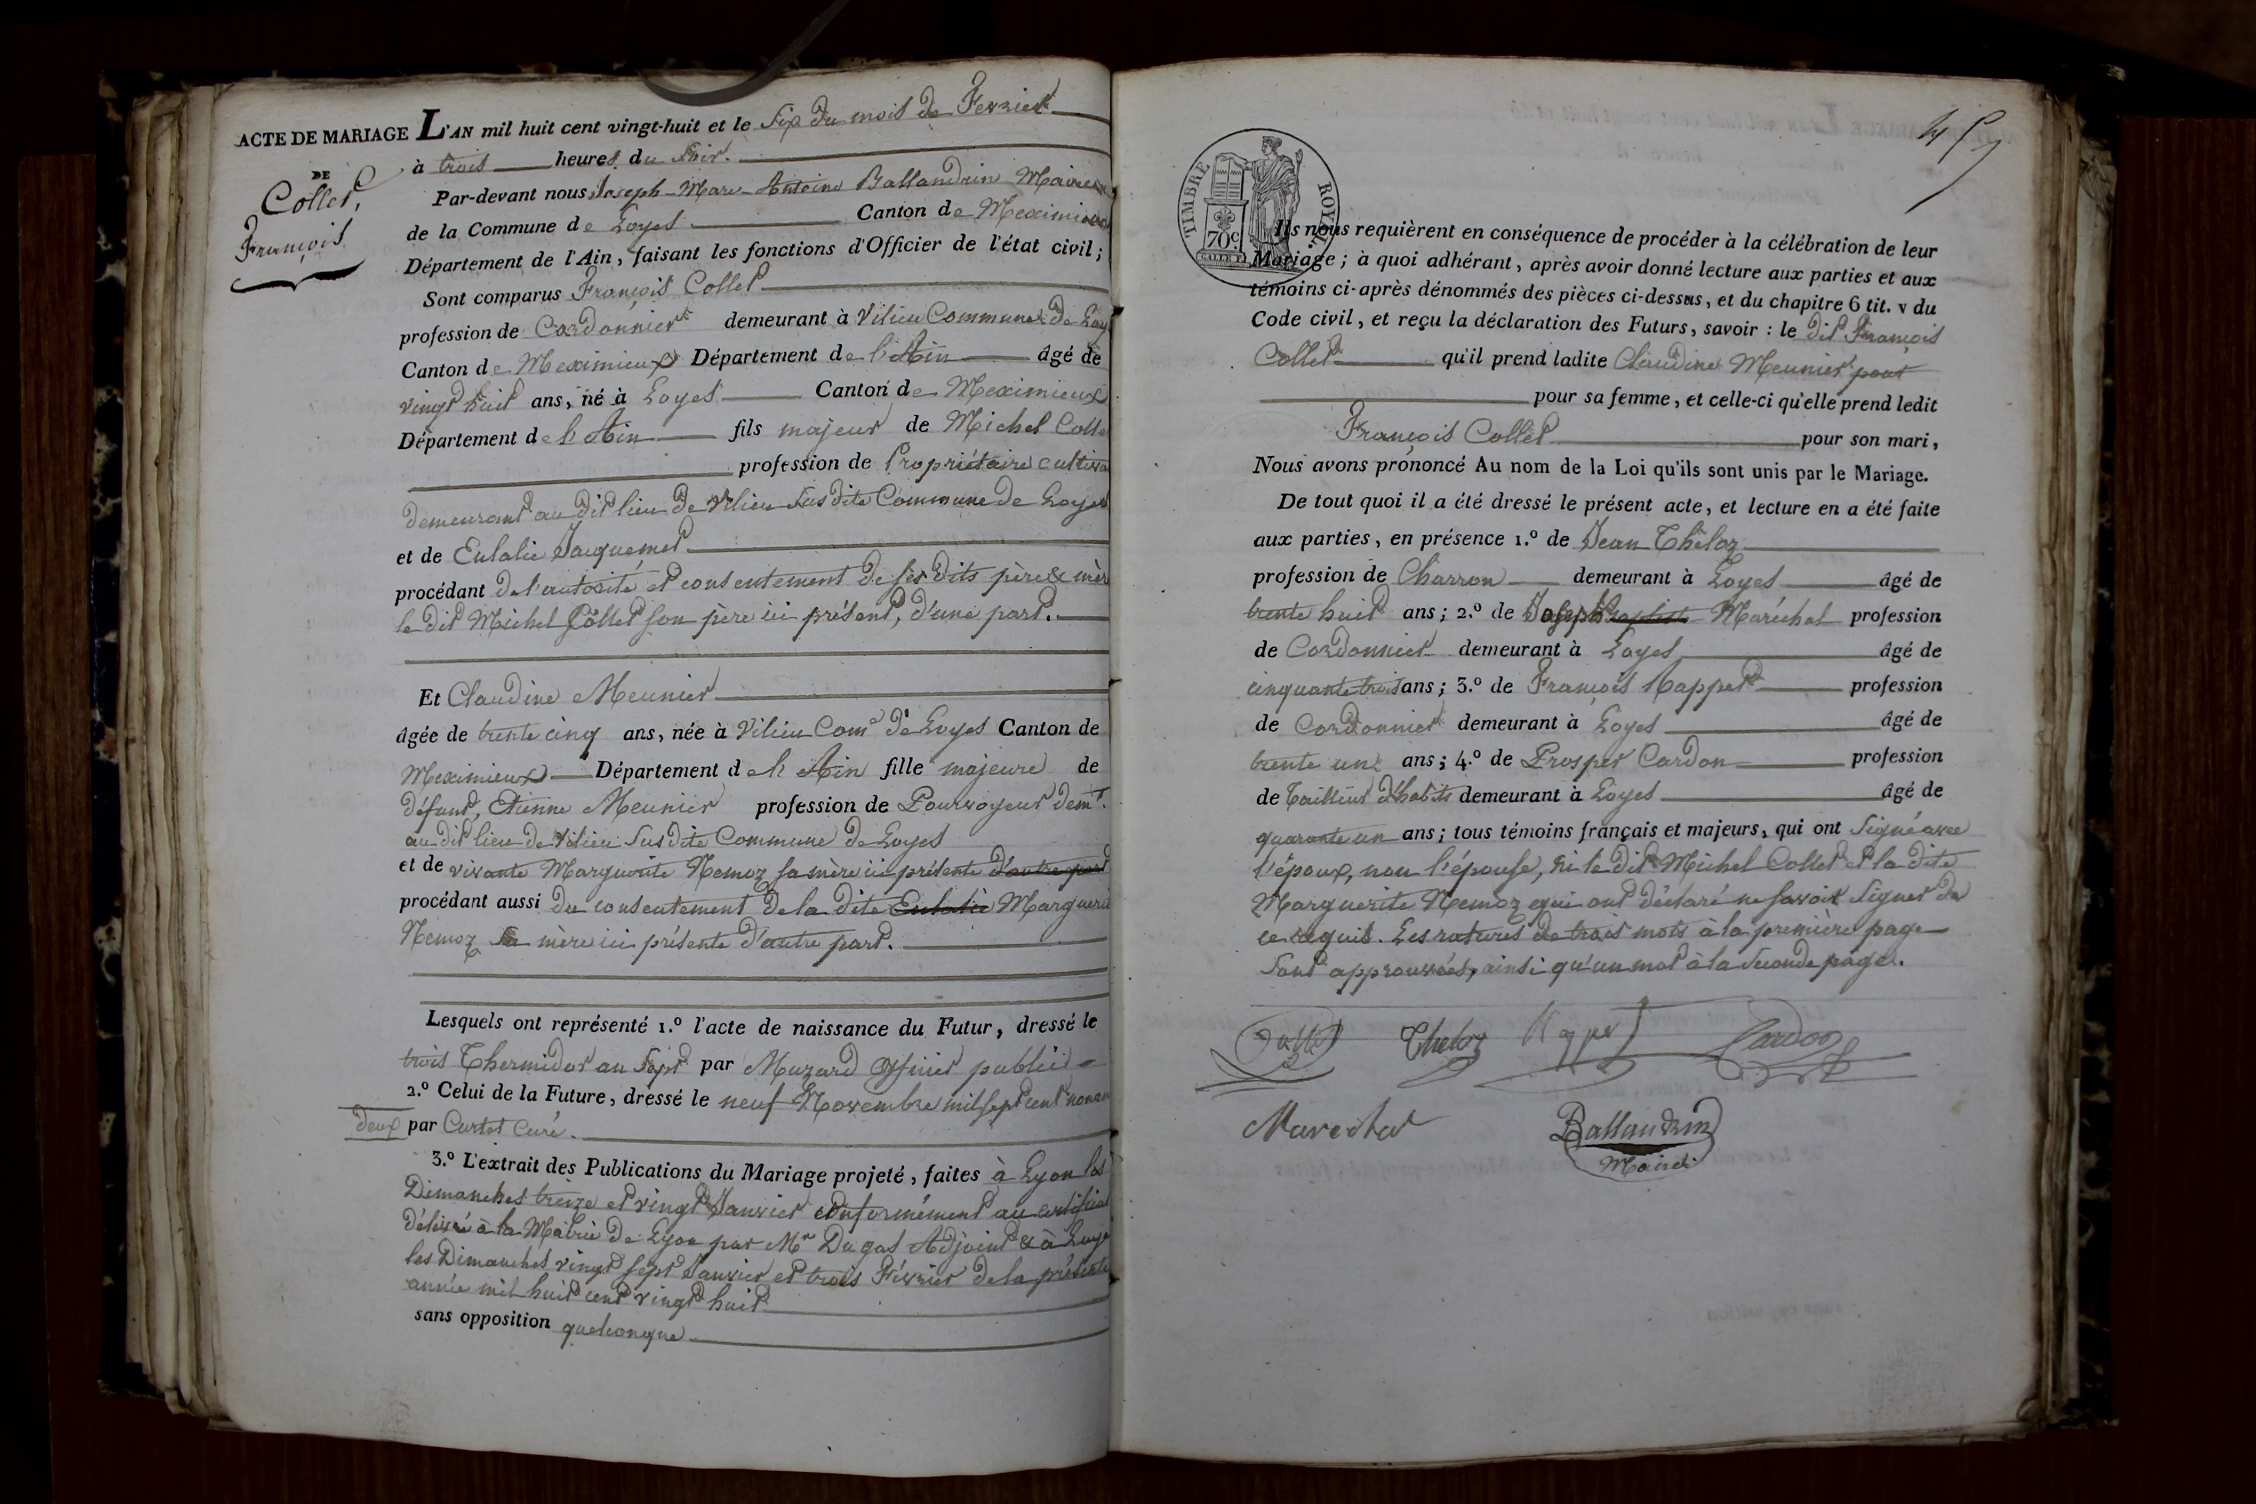 ACTE DE MARIAGE L'AN mil huit cent vingt-huit et le Six du mois de Fevrier
DE
Collet,
François
à trois heures du Soir.
Par-devant nous Joseph-Marc-Antoine Ballandrin Maire
de la Commune de Loyes Canton de Meximieux
Département de l'Ain, faisant les fonctions d'Officier de l'état civil;
Sont comparus François Collet
profession de Cordonnier demeurant à Vilieu Commune de Loy
Canton de Meximieux Département de l'Ain âgé de
vingt huit ans, né à Loyes Canton de Meximieux
Département de l'Ain fils majeur de Michel Colle
profession de Propriétaire cultiva
demeurant au dit lieu de Vilieu Susdite Commune de Loyes
et de Eulalie Jacquemet
procédant de l'autorité et consentement de ses dits père & mère
le dit Michel Collet son père ici présent, d'une part.
Et Claudine Meunier
âgée de trente cinq ans, née à Vilieu Com.e de Loyes Canton de
Meximieux Département de l'Ain fille majeure de
défunt, Etienne Meunier profession de Pourvoyeur dem.t
au dit lieu de Vilieu Susdite Commune de Loyes
et de vivante Marguerite Nemoz sa mère ici présente d'autre part
procédant aussi du consentement de la dite Eulalie Marguerit
Nemoz sa mère ici présente d'autre part.
Lesquels ont représenté 1.º l'acte de naissance du Futur, dressé le
trois Thermidor an Sept par Muzard officier public
2.º Celui de la Future, dressé le neuf Novembre mil sept cent nonan
deux par Curtet Curé.
3.º L'extrait des Publications du Mariage projeté, faites à Lyon les
Dimanches treize et vingt Janvier conformément au certificat
délivré à la Mairie de Lyon par Mr Dugas Adjoint & à Loye
les Dimanches vingt sept Janvier et trois Février de la présente
année mil huit cent vingt huit
sans opposition quelconque
45
TIMBRE ROYAL
70c
Ils nous requièrent en conséquence de procéder à la célébration de leur
Mariage; à quoi adhérant, après avoir donné lecture aux parties et aux
témoins ci-après dénommés des pièces ci-dessus, et du chapitre 6 tit. v du
Code civil, et reçu la déclaration des Futurs, savoir : le dit François
Collet qu'il prend ladite Claudine Meunier pour
pour sa femme, et celle-ci qu'elle prend ledit
François Collet pour son mari,
Nous avons prononcé Au nom de la Loi qu'ils sont unis par le Mariage.
De tout quoi il a été dressé le présent acte, et lecture en a été faite
aux parties, en présence 1.º de Jean Théloz
profession de Charron demeurant à Loyes âgé de
trente huit ans; 2.º de Joseph Maréchal profession
de Cordonnier demeurant à Loyes âgé de
cinquante trois ans; 3.º de François Rappet profession
de Cordonnier demeurant à Loyes âgé de
trente un ans; 4.º de Prosper Cardon profession
de Tailleur d'habits demeurant à Loyes âgé de
quarante un ans; tous témoins français et majeurs, qui ont Signé avec
l'époux, non l'épouse, ni le dit Michel Collet et la dite
Marguerite Nemoz qui ont déclaré ne savoir Signer de
ce requis. Les ratures de trois mots à la première page
Sont approuvées, ainsi qu'un mot à la Seconde page.
Collet Theloz Rappet Cardon
Marechal Ballandrin
Maire